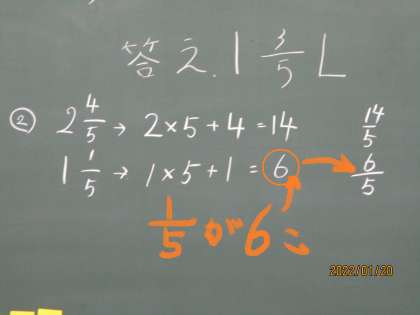 答え. 1 3/5 L
② 2 4/5 → 2×5+4=14 14/5
1 1/5 → 1×5+1=6 → 6/5
1/5が6こ
2022/01/20